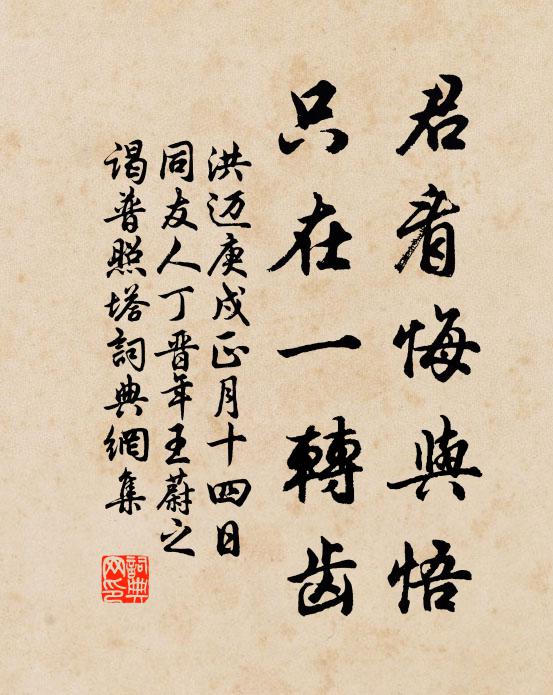 君看悔與悟
只在一轉齒
洪迈庚戌正月十四日
同友人丁晋年王蔚之
谒普照塔詞典網集
詞典网印